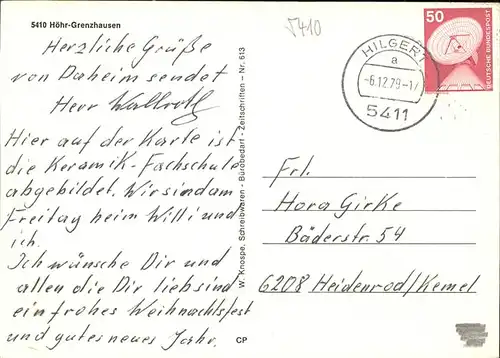 5410 Höhr-Grenzhausen
5410
Herzliche Grüße
von Daheim sendet
Herr
Hier auf der Karte ist
die Keramik-Fachschule
abgebildet. Wir sind am
Freitag beim Willi und
ich.
Ich wünsche Dir und
allen die Dir lieb sind
ein frohes Weihnachtsfest
und gutes neues Jahr.
W. Knospe, Schreibwaren - Bürobedarf - Zeitschriften - Nr. 613
CP
HILGERT
a
-6.12.79-17
5411
50
DEUTSCHE BUNDESPOST
Frl.
Hora Girke
Bäderstr. 54
6208 Heidenrod/Kemel